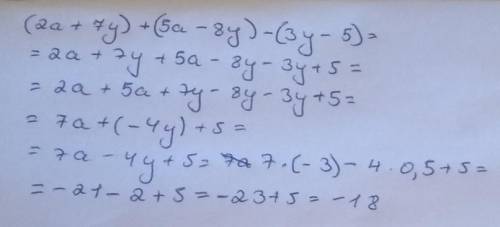 (2a + 7y) + (5a - 8y) - (3y - 5) =
= 2a + 7y + 5a - 8y - 3y + 5 =
= 2a + 5a + 7y - 8y - 3y + 5 =
= 7a + (-4y) + 5 =
= 7a - 4y + 5 = 7a 7 · (-3) - 4 · 0,5 + 5 =
= -21 - 2 + 5 = -23 + 5 = -18